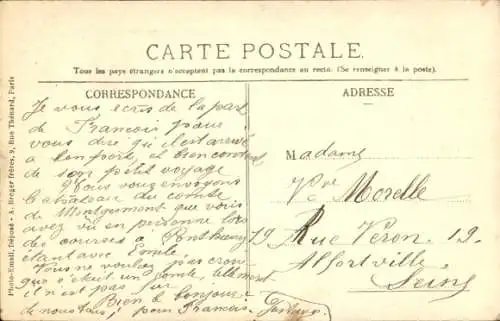 CARTE POSTALE
Tous les pays étrangers n'acceptent pas la correspondance au recto. (Se renseigner à la poste).
CORRESPONDANCE
Je vous ecris de la part
de Francois pour
vous dire qu'il est arrivé
a bon port, et bien content
de son petit voyage
Nous vous envoyons
le chateau du comte
de Montgomont que vous
avez vu en personne lors
des courses a
étant avec Emile
Vous ne voulez pas croire
que s'était un comte, tellement
il n'est pas fier
Bien le bonjour
de nous tous; pour Francois
ADRESSE
Madame
Vve Morelle
19 Rue Veron. 19.
Alfortville.
Seine
Photo-Email, Déposé - A. Breger frères, 9, Rue Thénard, Paris